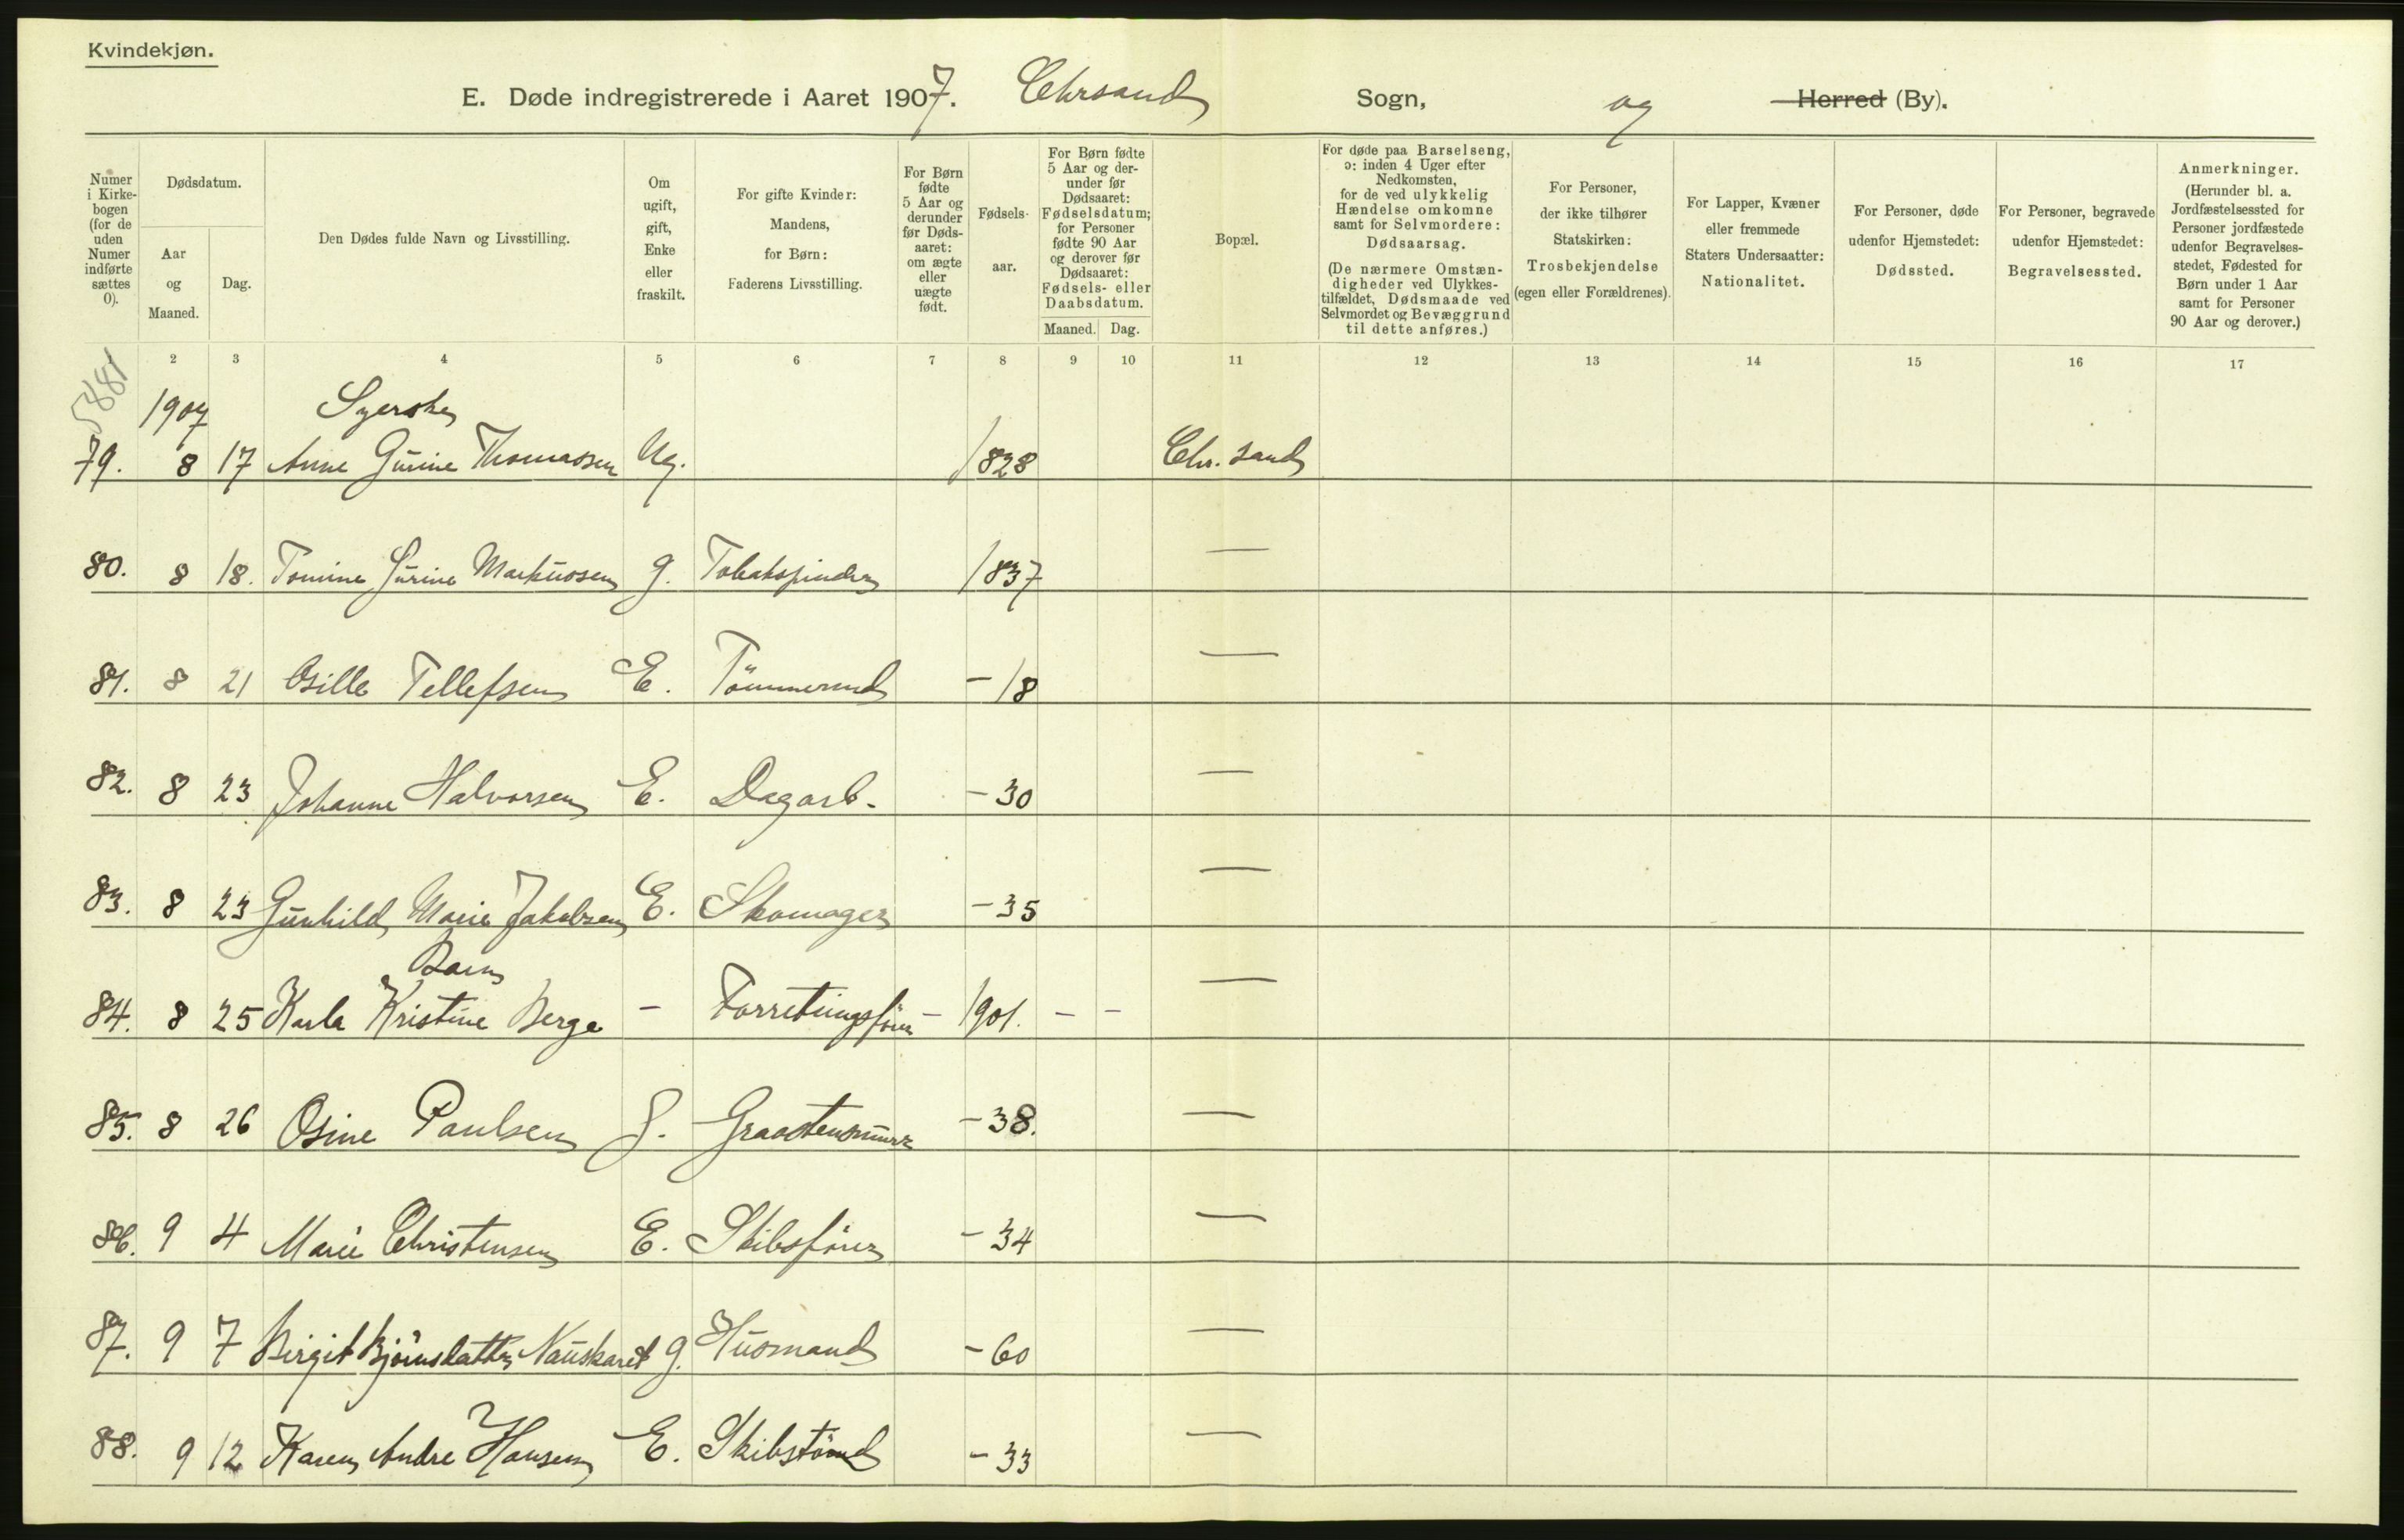 Kvindekjøn.
E. Døde indregistrerede i Aaret 1907. Chrsand Sogn, og Herred (By).
Numer i Kirkebogen (for de uden Numer indførte sættes 0).
Dødsdatum.
Aar og Maaned.
Dag.
Den Dødes fulde Navn og Livsstilling.
Om ugift, gift, Enke eller fraskilt.
For gifte Kvinder: Mandens, for Børn: Faderens Livsstilling.
For Børn fødte 5 Aar og derunder før Dødsaaret: om ægte eller uægte født.
Fødselsaar.
For Børn fødte 5 Aar og derunder før Dødsaaret: Fødselsdatum; for Personer fødte 90 Aar og derover før Dødsaaret: Fødsels- eller Daabsdatum.
Maaned. Dag.
Bopæl.
For døde paa Barselseng, ɔ: inden 4 Uger efter Nedkomsten, for de ved ulykkelig Hændelse omkomne samt for Selvmordere: Dødsaarsag.
(De nærmere Omstændigheder ved Ulykkestilfældet, Dødsmaade ved Selvmordet og Bevæggrund til dette anføres.)
For Personer, der ikke tilhører Statskirken: Trosbekjendelse (egen eller Forældrenes).
For Lapper, Kvæner eller fremmede Staters Undersaatter: Nationalitet.
For Personer, døde udenfor Hjemstedet: Dødssted.
For Personer, begravede udenfor Hjemstedet: Begravelsessted.
Anmerkninger.
(Herunder bl. a. Jordfæstelsessted for Personer jordfæstede udenfor Begravelsesstedet, Fødested for Børn under 1 Aar samt for Personer 90 Aar og derover.)
2 3 4 5 6 7 8 9 10 11 12 13 14 15 16 17
5881
1907 Syerske
79. 8 17 Anne Gurine Thomassen Ug. 1828 Chr.sand
80. 8 18. Tomine Gurine Markussen g. Tobakspinder 1837 —
81. 8 21 Osille Tellefsen E. Tömmermd — 18 —
82. 8 23 Johanne Halvorsen E. Dagarb. — 30 —
83. 8 23 Gunhild Marie Jakobsen E. Skomager — 35 —
Barn
84. 8 25 Karla Kristine Berge — Forretningsförer — 1901. — — —
85. 8 26 Osine Paulsen g. Graastensmurer — 38. —
86. 9 4 Marie Christensen E. Skibsförer — 34 —
87. 9 7 Birgit Björnsdatter Nauskaret g. Husmand — 60 —
88. 9 12 Karen Andre Hansen E. Skibstömd — 33 —